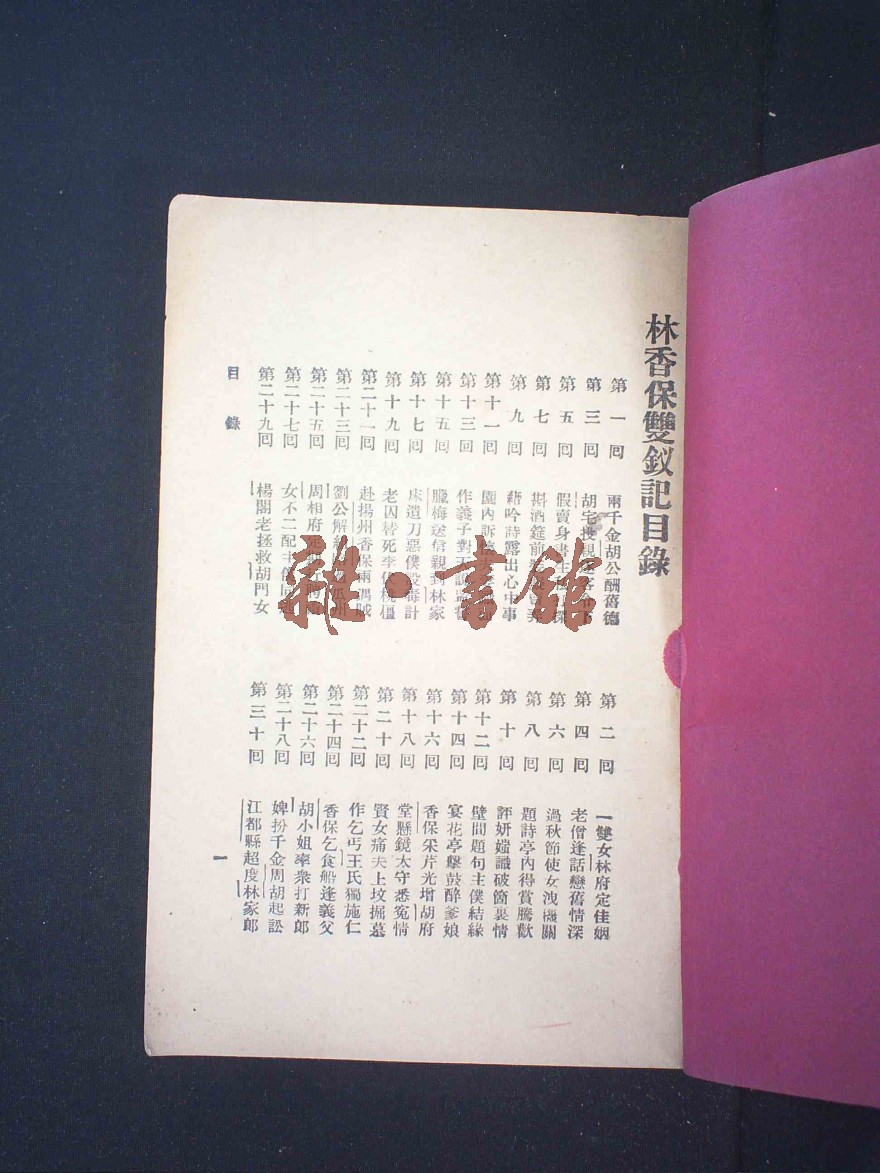 林香保雙釵記目錄
第一回 兩千金胡公酬舊德
第三回 胡宅
第五回 假賣身書
第七回 斟酒筵前
第九回 藉吟詩露出心中事
第十一回 園內訴
第十三回 作義子對
第十五回 臘梅送信親到林家
第十七回 床遺刀惡僕設毒計
第十九回 老囚替死李
第二十一回 赴揚州香保兩遇賊
第二十三回 劉公解
第二十五回 周相府
第二十七回 女不二配
第二十九回 楊閣老拯救胡門女
第二回 一雙女林府定佳姻
第四回 老僧逢話戀舊情深
第六回 過秋節使女洩機關
第八回 題詩亭內得賞騰歡
第十回 評妍媸識破箇裏情
第十二回 壁間題句主僕結緣
第十四回 宴花亭擊鼓醉爹娘
第十六回 香保采芹光增胡府
第十八回 堂懸鏡太守悉冤情
第二十回 賢女痛夫上墳掘墓
第二十二回 作乞丐王氏獨施仁
第二十四回 香保乞食船逢義父
第二十六回 胡小姐率衆打新郎
第二十八回 婢扮千金周胡起訟
第三十回 江都縣超度林家郎
目錄
一
雜·書館